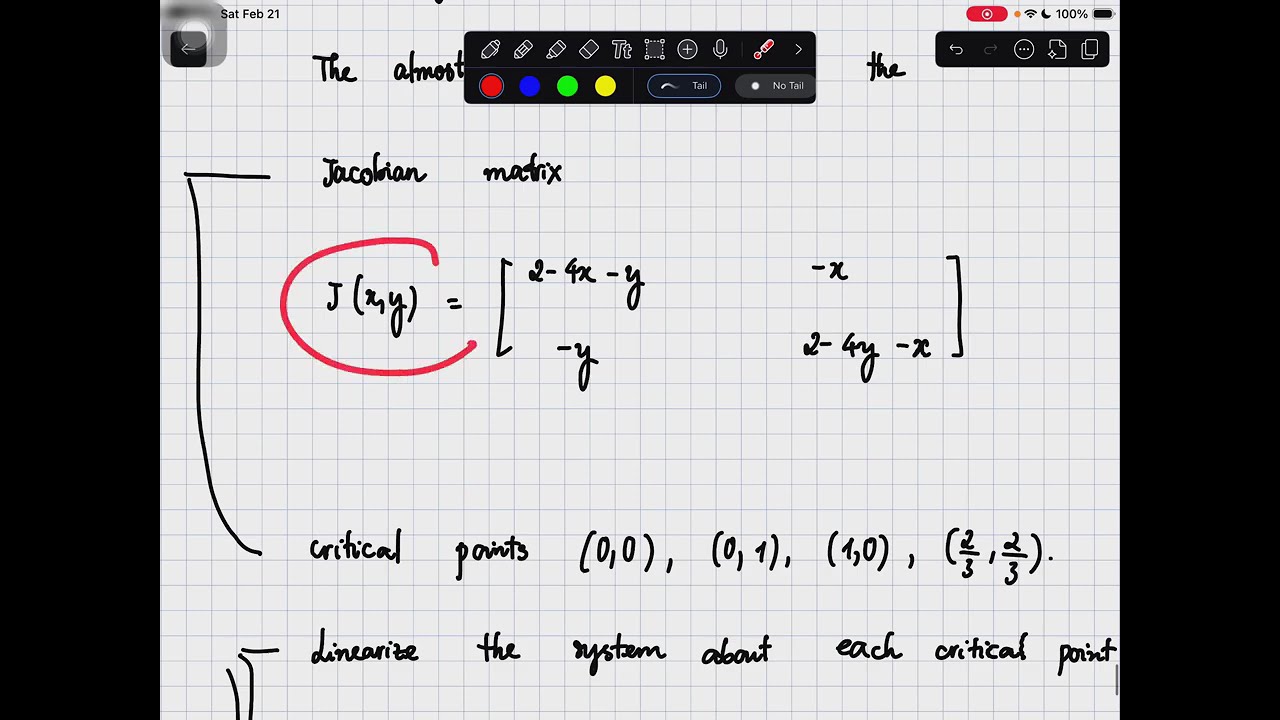 Sat Feb 21
100%
The almost the
Tt
Tail No Tail
Jacobian matrix
J(x,y) = [ 2-4x-y -x
-y 2-4y-x ]
critical points (0,0), (0,1), (1,0), (2/3, 2/3).
Linearize the system about each critical point